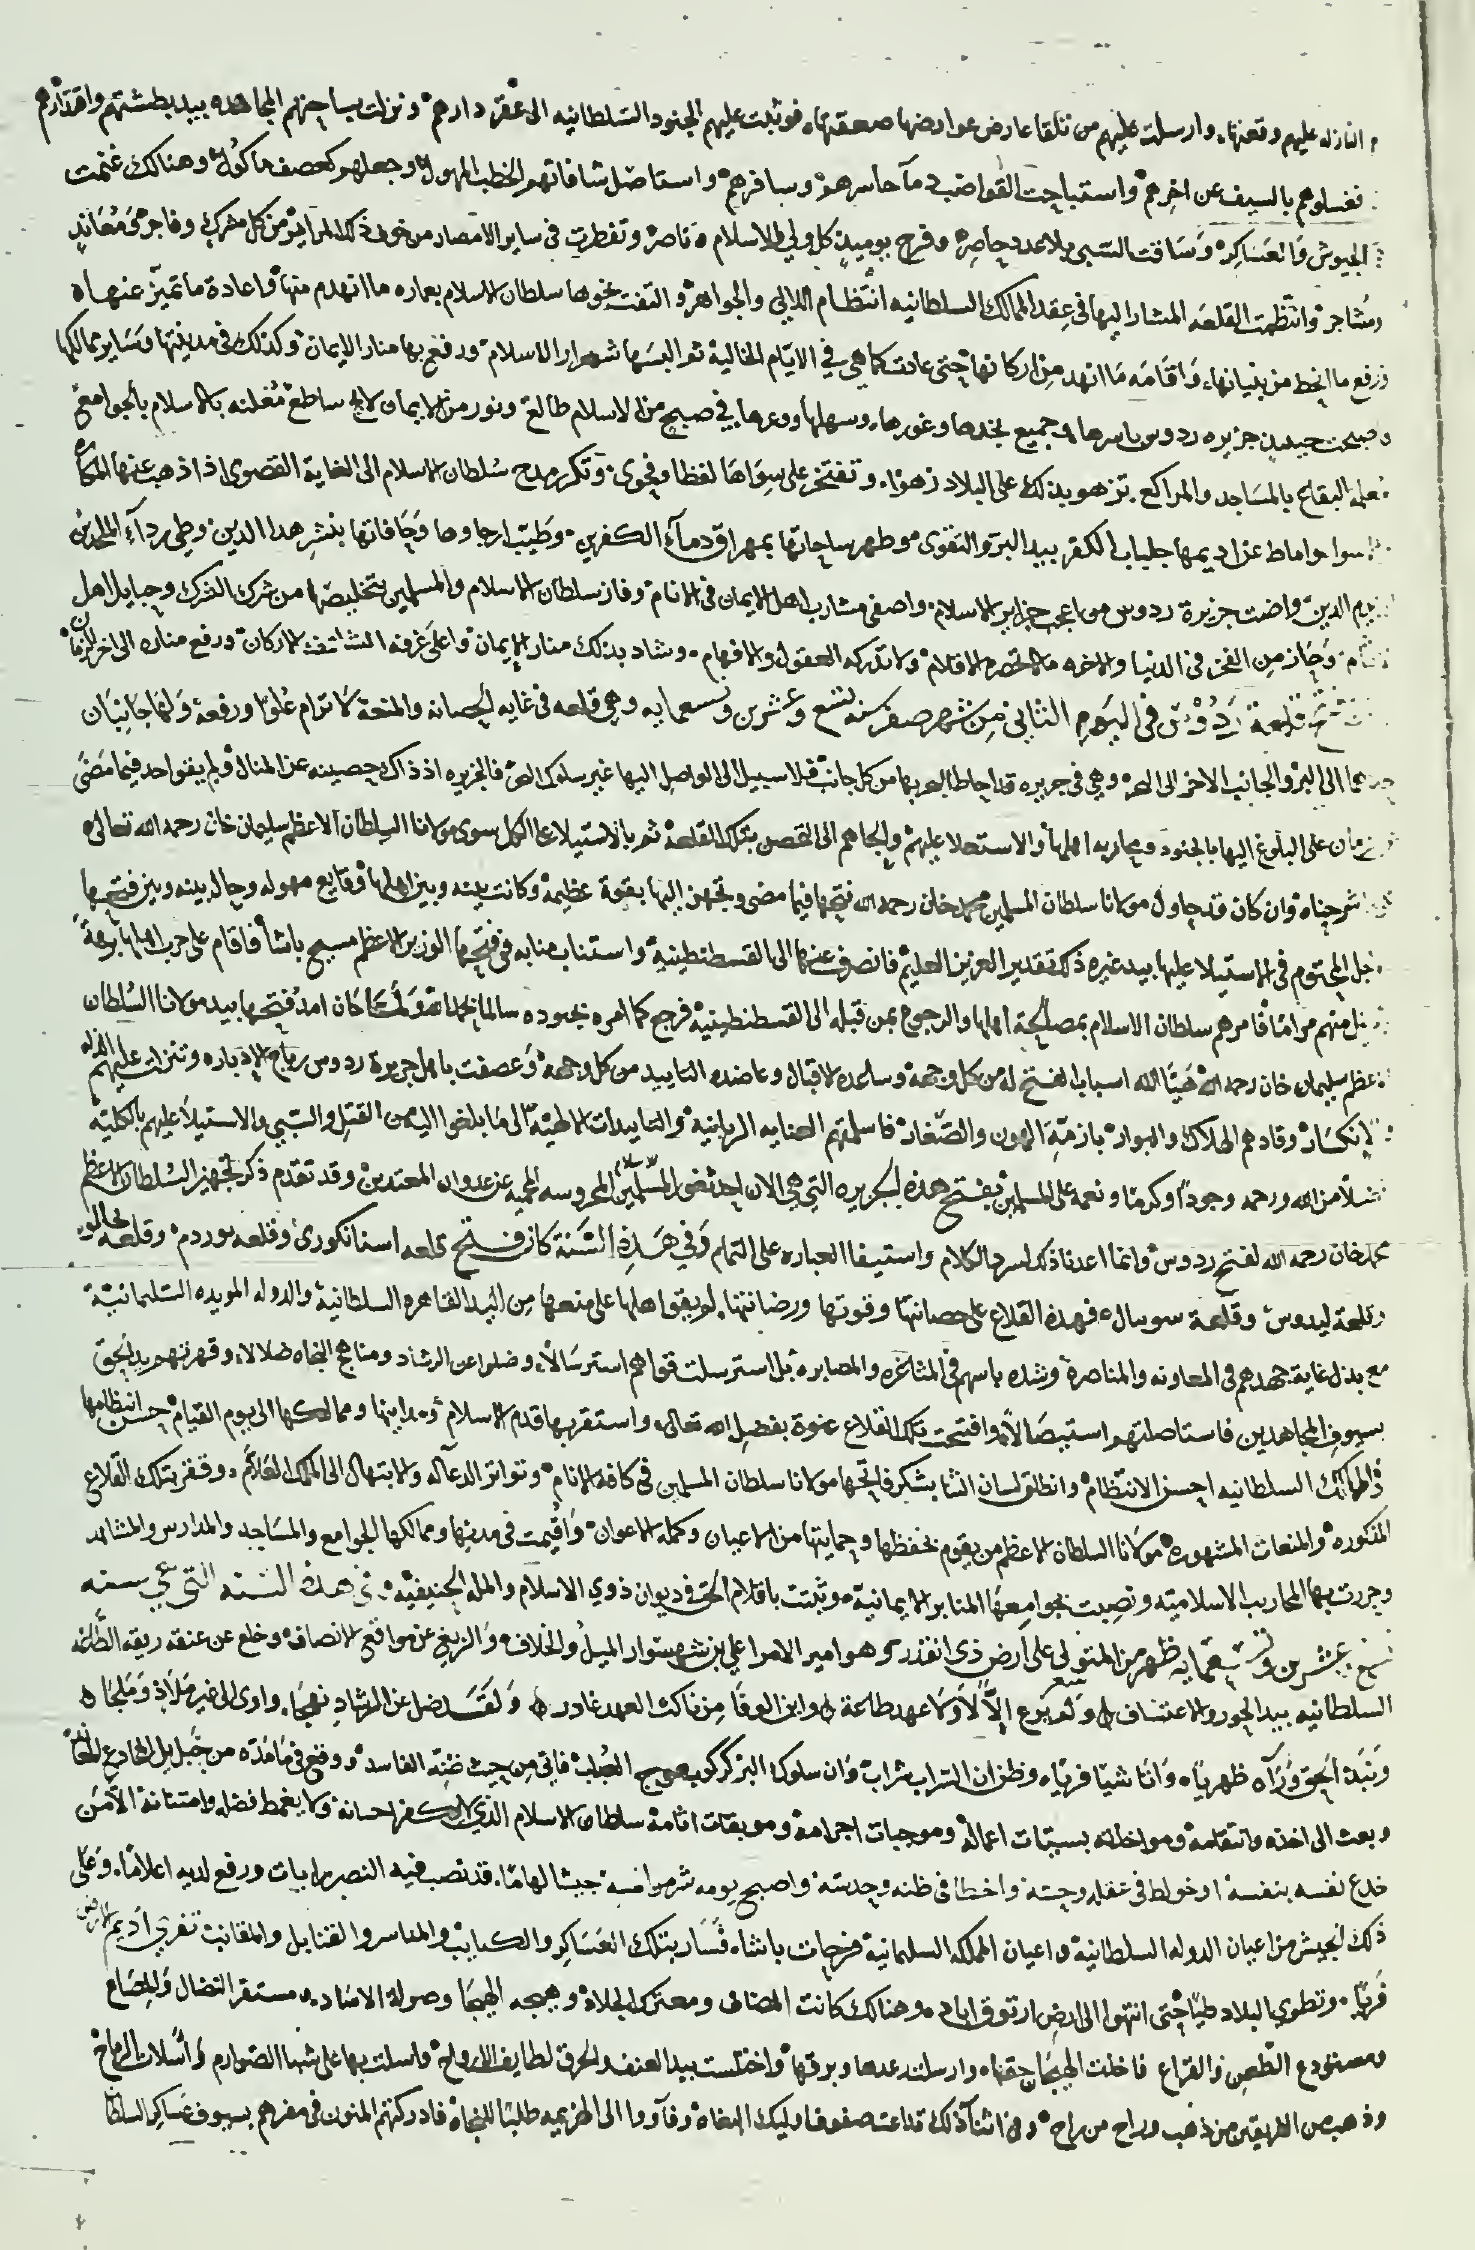 النازله عليهم وقعتها، وارسلت عليهم من تلقا عارض عوارضها صعقتها، فوثبت عليهم الجنود السلطانيه الى عقر دارهم ونزلت بساحتهم المجاهده بيد بطشتهم واقتدارهم
فغسلوهم بالسيف عن اخرهم واستباحت القواضب دمآ حاسرهم وسافرهم واستاصل شافاتهم الخطب المهول وجعلهم كعصف ماكول وهنالك غنمت
الجيوش والعساكر وساقت السبي بلا عدد حاصر وفرح يوميذ كل ولي للاسلام وناصر وتفطرت في ساير الامصار من خوف ذلك المراير من كل مشرك وفاجر ومعاند
ومشاجر وانتظمت القلعه المشار اليها في عقد الممالك السلطانيه انتظام اللالي والجواهر والتفت نحوها سلطان الاسلام بعماره ما انهدم منها واعادة ما تميز عنها
ورفع ما انحط من بنيانها، واقامه ما انهد من اركانها حتى عادت كما هي في الايام الخالية ثم البسها شعار الاسلام ورفع بها منار الايمان وكذلك في مدينتها وساير ممالكها
واصبحت حينيذ جزيره ردوس باسرها وجميع نجدها وغورها، وسهلها ووعرها، في صبح من الاسلام طالع ونور من الايمان لامع ساطع مغلنه بالاسلام بالجوامع
معلمه البقاع بالمساجد والمراكع. تزهو بذلك على البلاد زهوا، وتفتخر على سواها لفظا وفحوى وتكرر مدح سلطان الاسلام الى الغاية القصوى اذ اذهب عنها المكاره
والاسوا واماط عن اديمها جلباب الكفر بيد البر والتقوى وطهر ساحاتها بمهراق دمآء الكفرين وطيب ارجاوها وحافاتها بنشر هذا الدين وطي ردآء الملحدين
الدين واضت جزيرة ردوس من اعجب جزاير الاسلام واصفى مشارب اهل الايمان في الانام وفاز سلطان الاسلام والمسلمين بتخليصها من شرك الشرك وحبايل اهل
وحاز من الفخر في الدنيا والاخره ما لا تحصره الاقلام ولا تدركه العقول والافهام وشاد بذلك منار الايمان واعلى غرفه الشامخة الاركان ورفع مناره الى اخر الزمان
فتح قلعة ردوس في اليوم الثاني من شهر صفر سنه تسع وعشرين وتسعمايه وهي قلعه في غايه الحصانه والمنعة لا ترام علوا ورفعة ولها جانبان
الى البر والجانب الاخر الى البحر وهي في جزيره قد احاط البحر بها من كل جانب فلا سبيل الى الواصل اليها غير سلوك البحر فالجزيره اذ ذاك حصينه عن المنال ولم يقو احد فيما مضى
من زمان على البلوغ اليها بالجنود ومحاربه اهلها والاستعلا عليهم والجاهم الى التحصن بتلك القلعة ثم بالاستيلا على الكل سوى مولانا السلطان الاعظم سليمان خان رحمه الله تعالى
شرحناه وان كان قد حاول مولانا سلطان المسلمين محمد خان رحمه الله فتحها فيما مضى وتجهز اليها بقوة عظيمة وكانت بينه وبين اهلها وقايع مهوله وحال بينه وبين فتحها
اجل المحتوم في الاستيلا عليها بيد غيره ذلك تقدير العزيز العليم فانصرف عنها الى القسطنطينية واستناب منابه في فتحها الوزير الاعظم مسيح باشا فاقام على حرب اهلها برهة
منهم مراما فامرهم سلطان الاسلام بمصالحة اهلها والرجوع بمن قبله الى القسطنطينية فرجع كما امره بجنوده سالما ولما كان امد فتحها بيد مولانا السلطان
الاعظم سليمان خان رحمه الله هيّا الله اسباب الفتح له من كل وجهة وساعده الاقبال وعاضده التاييد من كل وجهة وعصفت باهل جزيرة ردوس رياح الادبار وتنزلت عليهم الذله
والانكسار وقادهم الهلاك والبوار بازمة الهون والصغار فاسلمتهم العنايه الربانية والتاييدات الالهية الى ما بلغوا اليه من القتل والسبي والاستيلا عليهم بالكلية
فضلا من الله ورحمه وجودا وكرما ونعمه على المسلمين بفتح هذه الجزيره التي هي الان احد ثغور المسلمين المحروسه المحميه عن عدوان المعتدين وقد تقدم ذكر تجهيز السلطان الاعظم
محمد خان رحمه الله لفتح ردوس وانما اعدنا ذلك لسرد الكلام واستيفا العباره على التمام وفي هذه السنة كان فتح قلعه استانكوري وقلعه بوردم وقلعه
وقلعة ليدوس وقلعة سوسال فهذه القلاع على حصانتها وقوتها ورضانتها، لم يقو اهلها على منعها من اليد القاهره السلطانية والدوله المويده السليمانية
مع بذل غاية جهدهم في المعاونه والمناصرة وشده باسهم في المثاغره والمصابره بل استرسلت قواهم استرسالا، وضلوا عن الرشاد ومناهج النجاه ضلالا، وقهرتهم يد الحق
بسيوف المجاهدين فاستاصلتهم استيصالا وافتتحت تلك القلاع عنوة بفضل الله تعالى واستقر بها قدم الاسلام في مداينها وممالكها الى يوم القيام حسن انتظامها
في الممالك السلطانيه احسن الانتظام وانطلق لسان الثنا بشكر فاتحها مولانا سلطان المسلمين في كافة الانام وتواتر الدعآ له والابتهال الى الملك العلام، وقرر بتلك القلاع
المذكوره والمنعات المشهوره مولانا السلطان الاعظم من يقوم بحفظها وحمايتها من الاعيان وكمله الاعوان واقيمت في مدينها وممالكها الجوامع والمساجد والمدارس والمشاهد
وحررت بها المحاريب الاسلامية ونصبت بجوامعها المنابر الايمانية وثبتت باقلام الحق في ديوان ذوي الاسلام والمله الحنيفية وفي هذه السنه التي هي سنه
تسع وعشرين وتسعمايه ظهر من المتولى على ارض ذي القدر وهو امير الامرا علي بن شهسوار الميل والخلاف والزيغ عن مواقع الانصاف وخلع عن عنقه ربقه الطاعه
السلطانيه بيد الجور والاعتساف ولم يرع إلّا ولا عهد طاعة واين الوفا من ناكث العهد غادر ولقد ضل عن الرشاد نهجا، واوى الى غير ملاذ وملجا
ونبذ الحق ورآه ظهريا، واتا شيا فريا، وظن ان السراب شراب وان سلوك البر كركوب العباب فاتي من حيث ضنه الفاسد ووقع في مامنه من خبل الخادع المعاند
وبعث الى اخذه وانتقامه ومواخذته بسيّيات اعماله وموجبات اجرامه وموبقات اثامه سلطان الاسلام الذي لا يكفر احسانه ولا يغمط فضله وامتنانه الا من
خدع نفسه بنفسه او خولط في عقله وحسه واخطا في ظنه وحدسه واصبح يومه شر من امسه جيشا لهاما، قد نصب فيه النصر رايات ورفع لديه اعلاما، وعلى
ذلك الجيش من اعيان الدوله السلطانية واعيان المملكه السليمانية فرحات باشا، فسار بتلك العساكر والكتايب والمناسر والقنابل والمقانب تفري اديم الارض
فريا، وتطوي البلاد طيا حتى انتهوا الى ارض ارتوق اباد، وهنالك كانت المصاف ومعترك الجلاد وهيجه الهيجا وصولة الاساد، مستقر النضال والمصاع
ومستودع الطعن والقراع فاخذت الهيجاء حقها، وارسلت رعدها وبرقها واختلست بيد العنف والخرق لطايف الارواح واسلت بها على شبا الصوارم واسلات الرماح
وذهب من الفريقين من ذهب وراح من راح وفي اثنآ ذلك تداعت صفوف اوليك البغاه وفآووا الى الهزيمه طلبا للنجاه فادركتهم المنون في مفرهم بسيوف عساكر السلطان